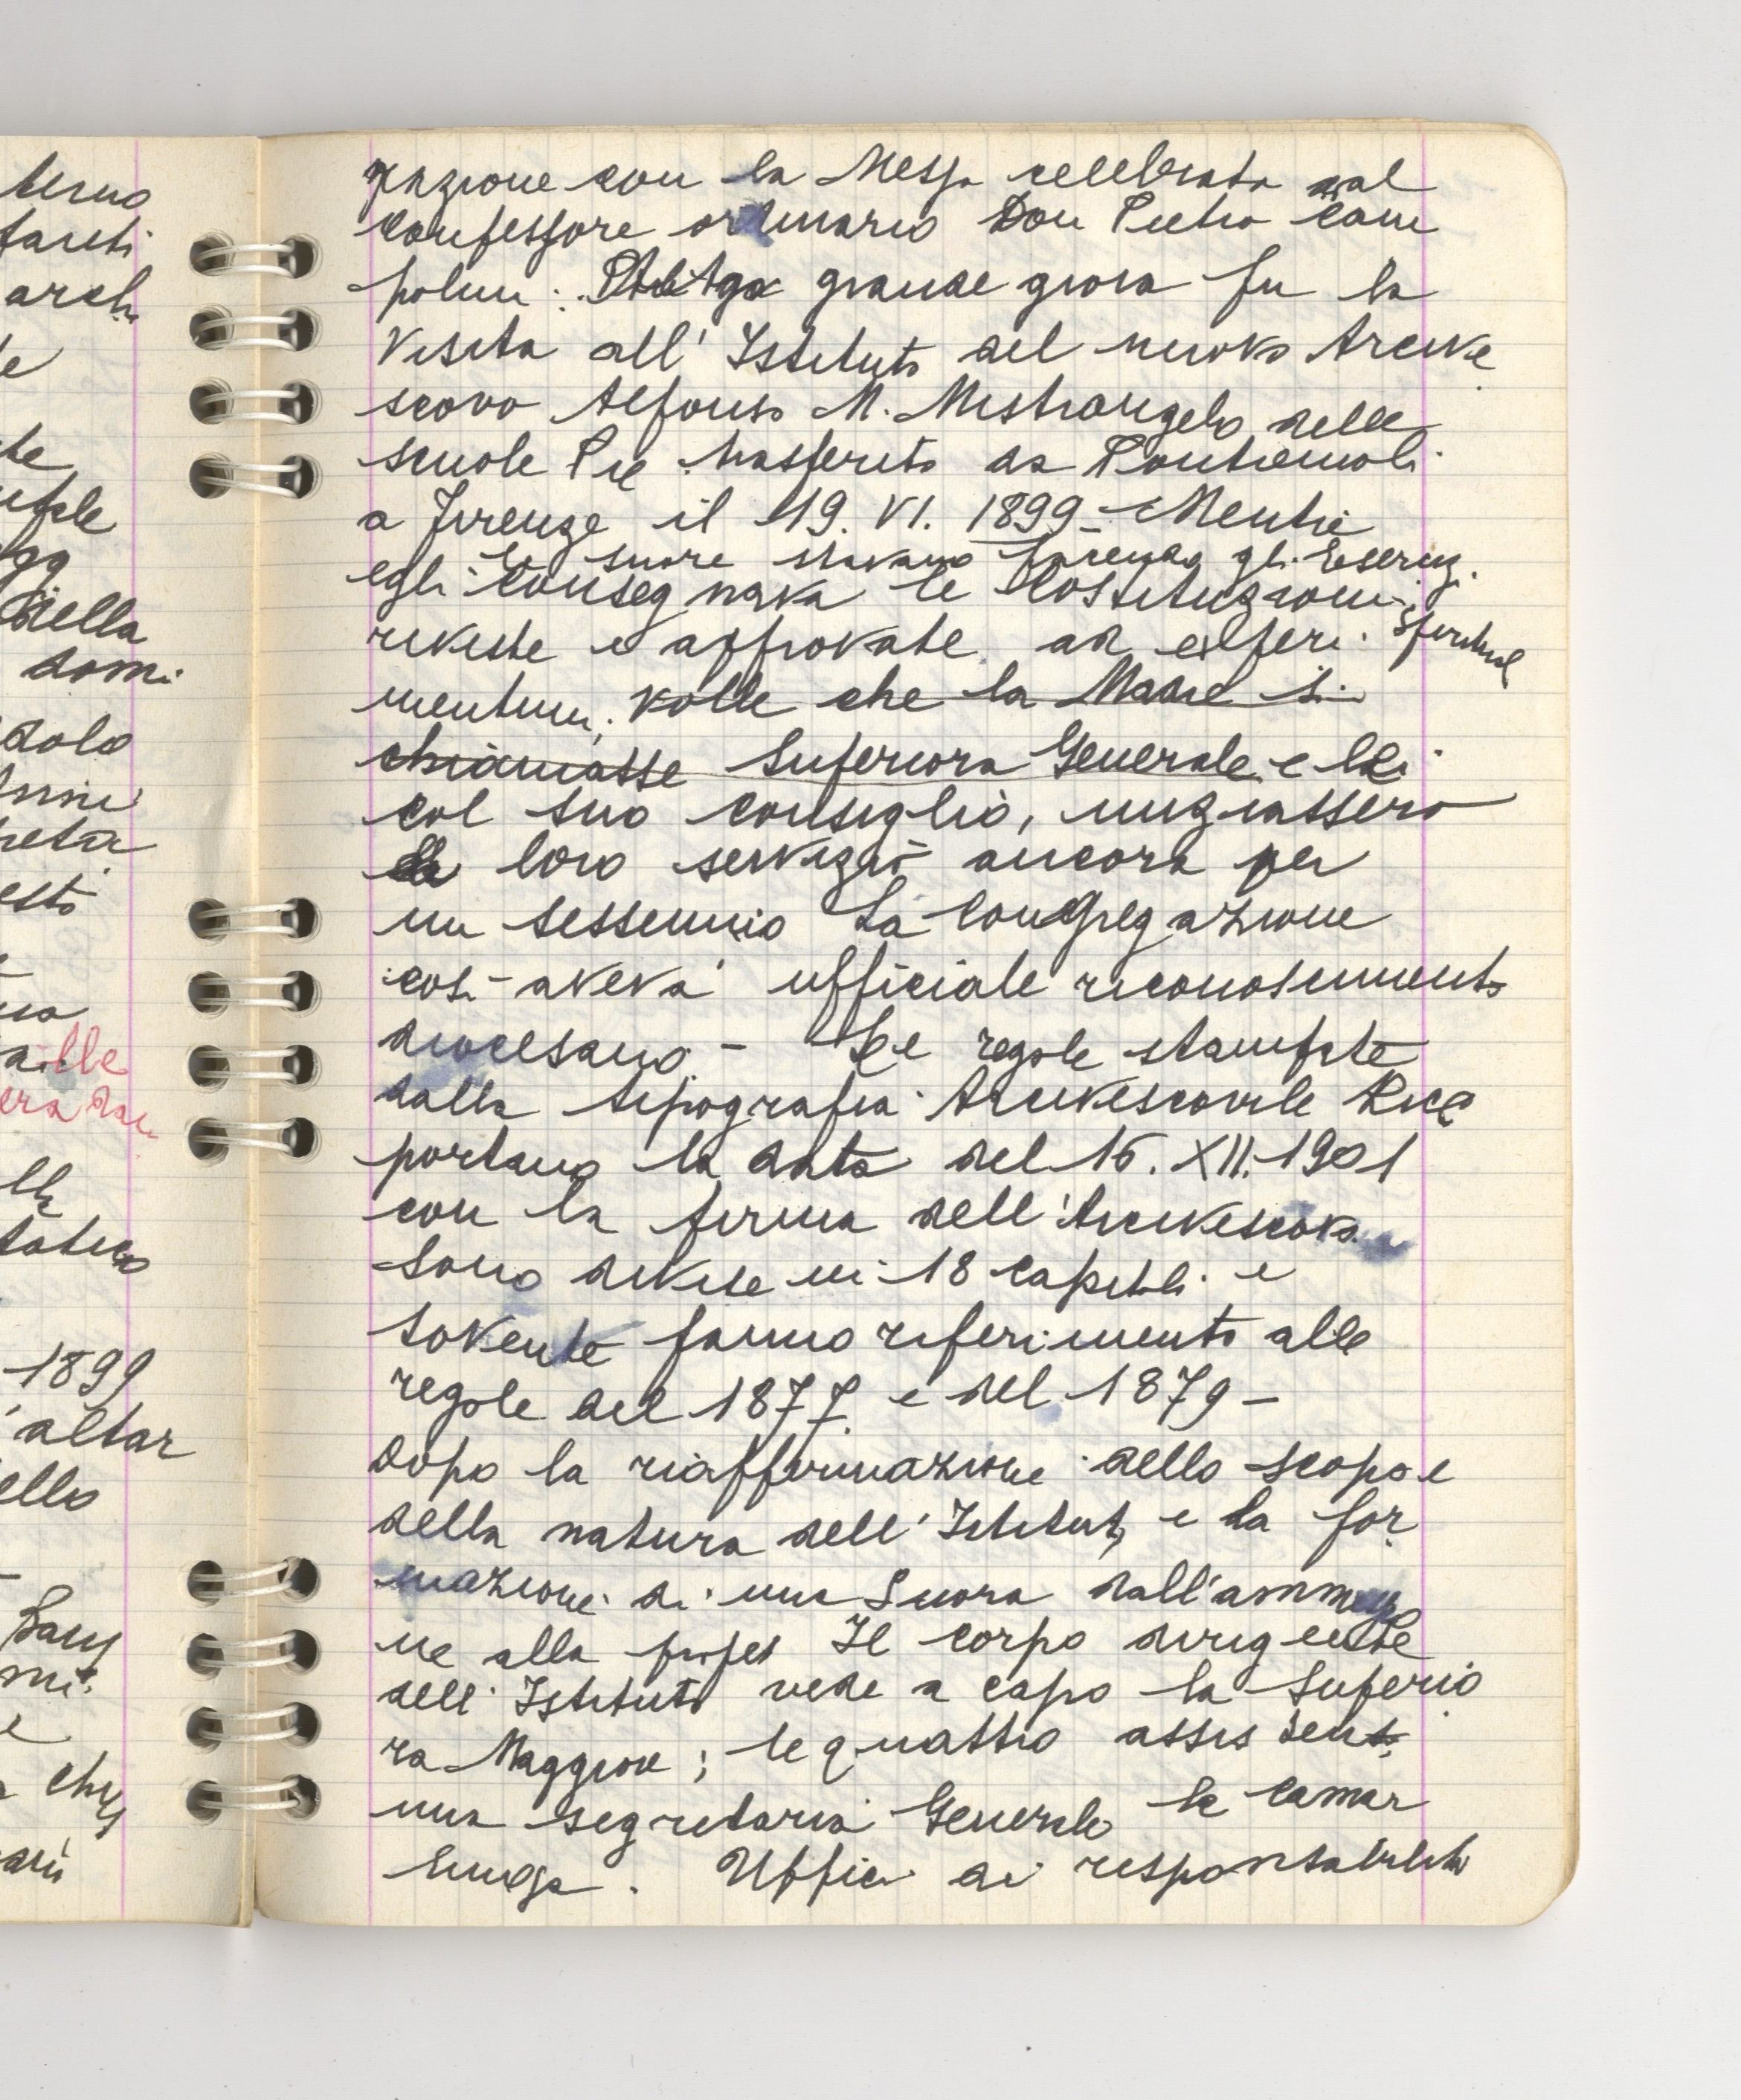 terno
fanti
arch
le
della
domi
dolo
esti
aille
era dan
1899
'altar
ello
razione con la Messa celebrata dal
confessore ordinario Don Pietro Cam
polmi. grande gioia fu la
visita all'Istituto del nuovo Arcive
scovo Alfonso M. Mistrangelo delle
scuole Pie trasferito da Pontremoli
a Firenze il 19. VI. 1899 - Mentre
le suore stavano facendo gli Eserciz.
egli consegnava le Costituzioni
spirituali
riviste e approvate ad experi
mentum; volle che la Madre si
chiamasse Superiora Generale e lei
col suo consiglio, iniziassero
loro servizi ancora per
un sessennio La Congregazione
così aveva ufficiale riconoscimento
diocesano - Le regole stampate
dalla tipografia Arcivescovile
portano la data del 16. XII. 1901
con la firma dell'Arcivescovo
sono divise in 18 capitoli e
sovente fanno riferimento alle
regole del 1877 e del 1879 -
Dopo la riaffermazione dello scopo e
della natura dell'Istituto e la for
mazione di una Suora dall'ammissio
ne alla profes Il corpo dirigente
dell'Istituto vede a capo la Superio
ra Maggiore; le quattro assistenti
una segretaria Generale la camar
linga. Uffici di responsabilità